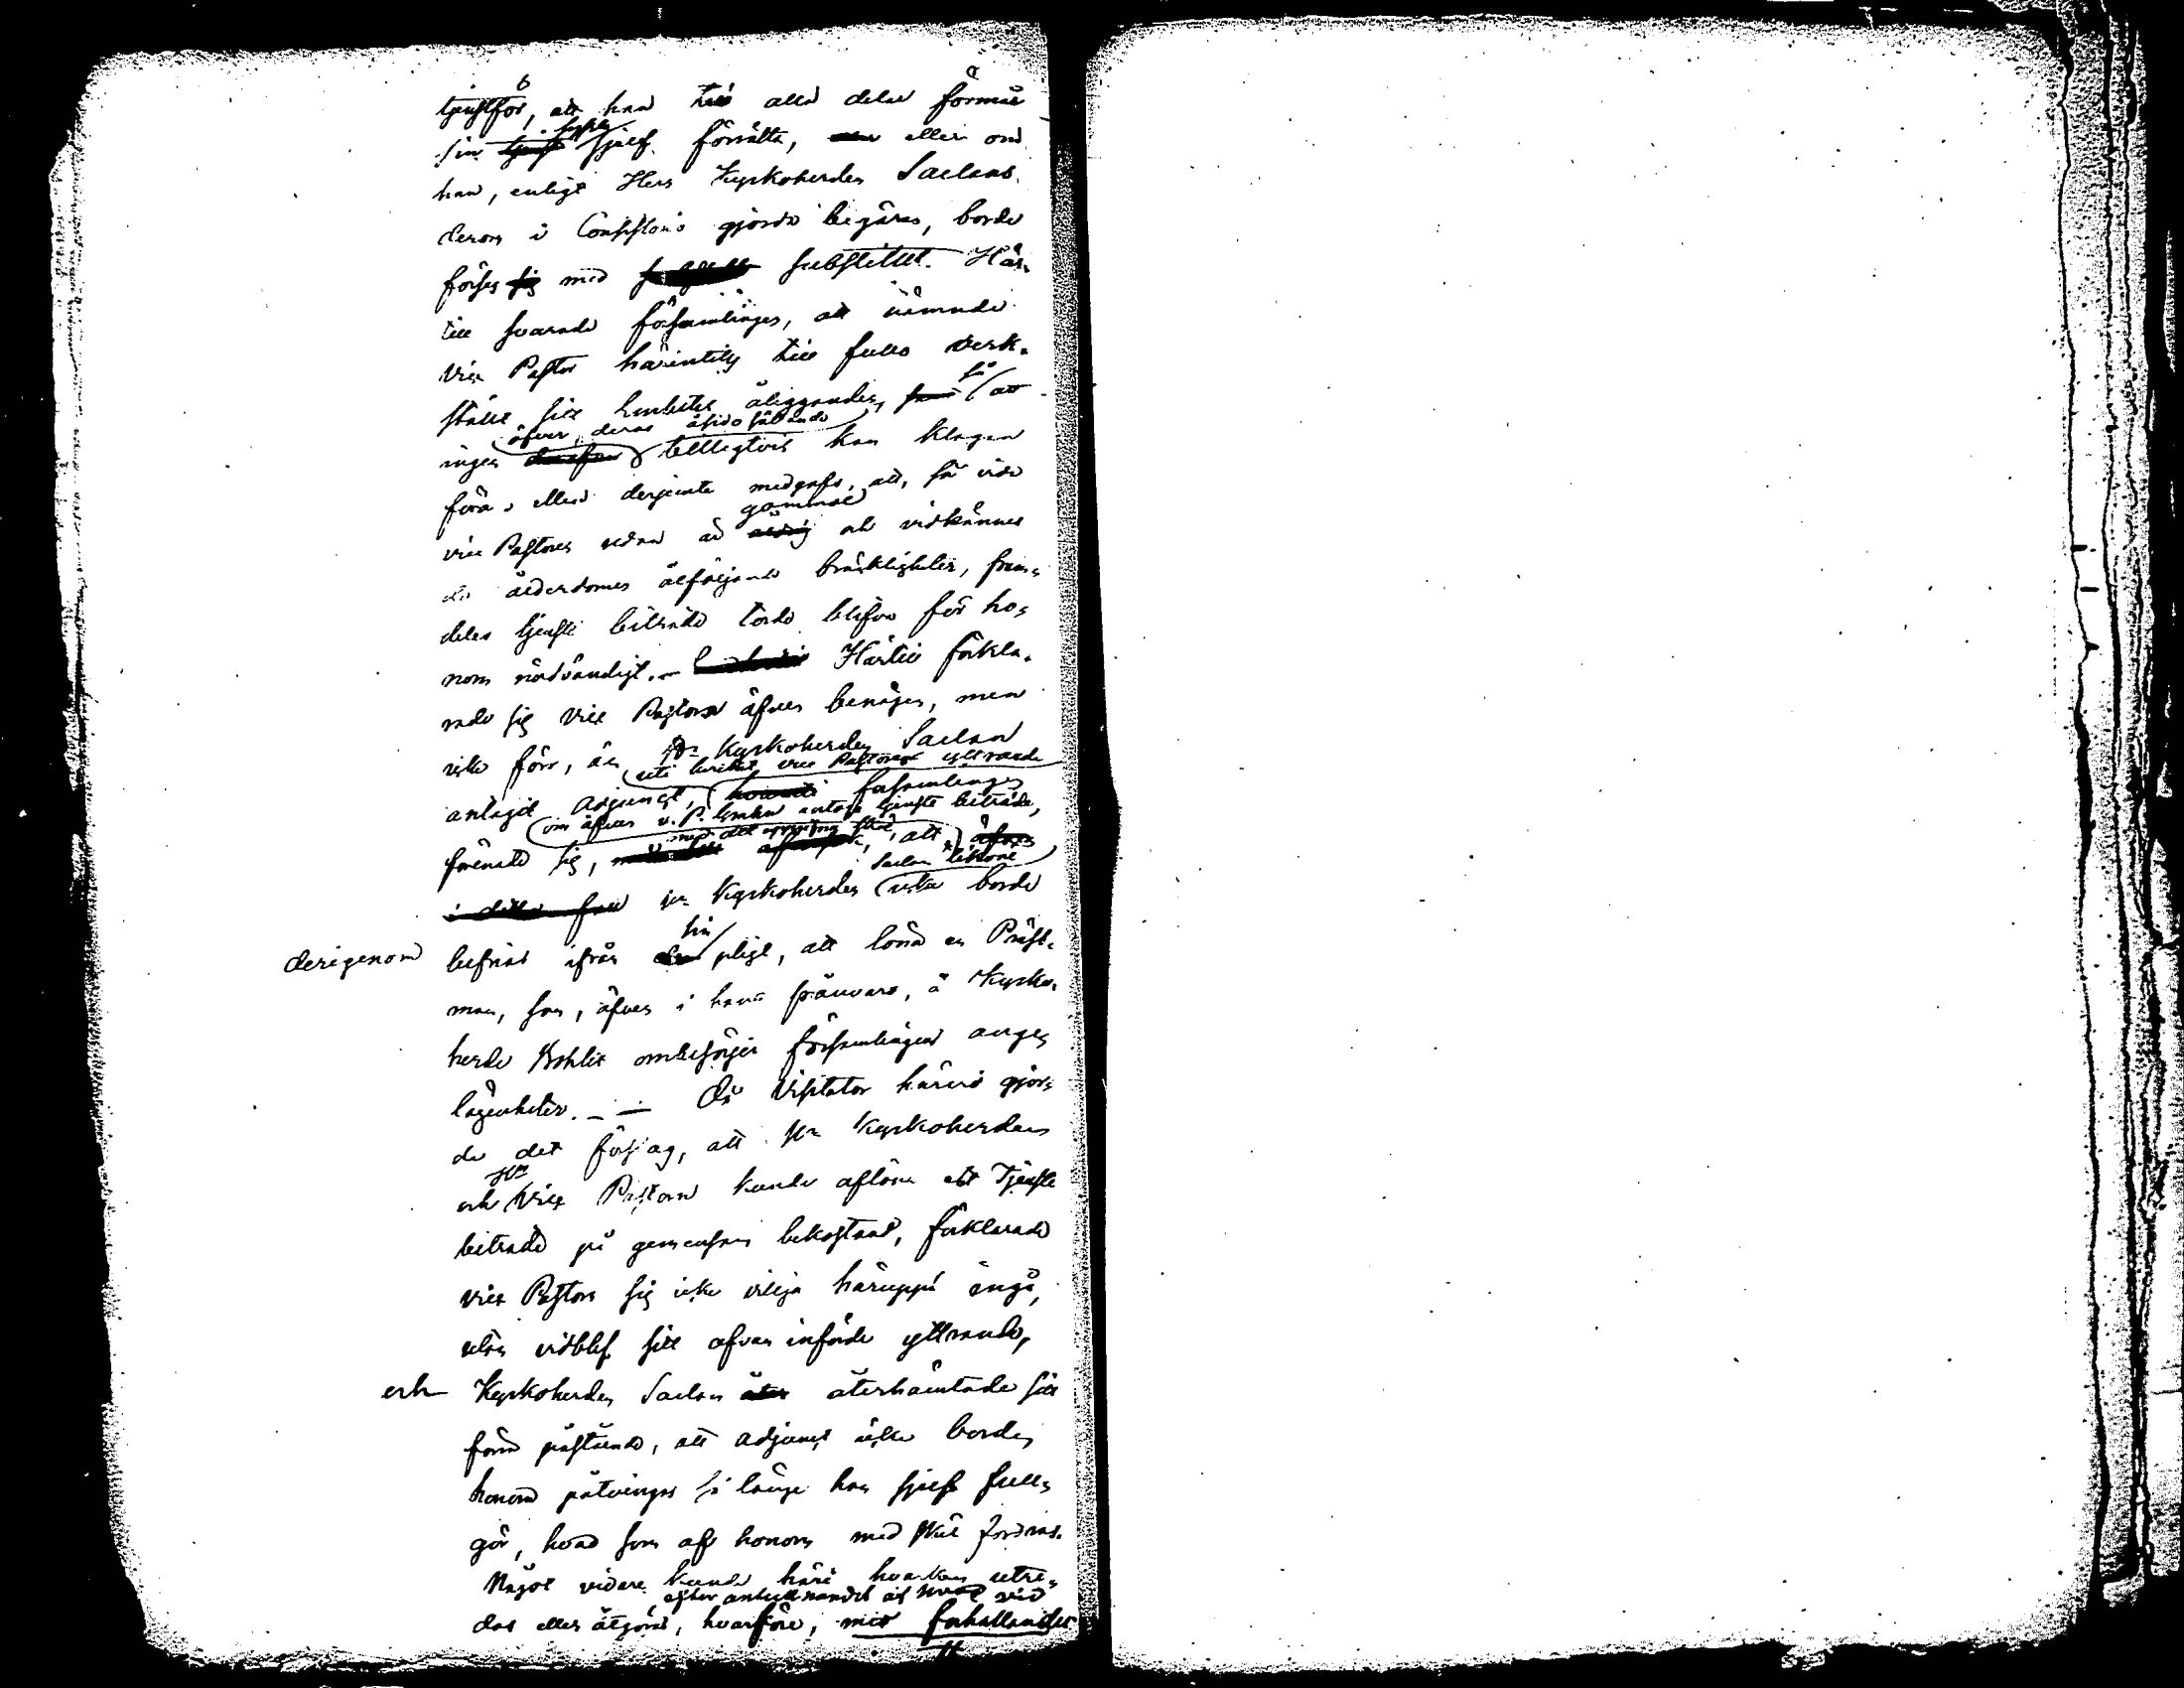 tjenstför, att han till alla delar förmår
sin syssla sjelf förrätta, eller om
han, enligt Herr Kyrkoherden Saclans
derom i Consistorio gjorda begäran, borde
förses med substitut. Här-
till svarade församlingen, att nämnde
vice Pastor härintills till fullo verk-
ställt sitt embetes åligganden, så att
ingen öfver deras åsidosättande billigtvis kan klagan
föra, eller derjemte medgafs, att, så vida
vice Pastoren redan är gammal och vidkännes
de ålderdomen åtföljande bräckligheter, fram-
deles tjenste biträde torde blifva för ho-
nom nödvändigt. — Härtill förkla-
rade sig vice Pastorn äfven benägen, men
icke förr, än Hr Kyrkoherden Saclan
antagit Adjunct, uti hvilket vice Pastorns yttrande församlingen
förenade sig, med det uppgifna skäl, att
om äfven v. P. antoge tjenste biträde,
Hr Kyrkoherden Saclan likväl icke borde
derigenom befrias ifrån sin pligt, att löna en Prest-
man, som, äfven i hans frånvaro, å Kyrko-
herde Bohlet ombesörjer församlingens ange-
lägenheter. — — Då Visitator härvid gjor-
de det förslag, att Hr Kyrkoherden
och Hr Vice Pastorn kunde aflöna ett Tjenste
biträde på gemensam bekostnad, förklarade
vice Pastorn sig icke vilja häruppå ingå,
utan vidblef sitt ofvan införde yttrande,
och Kyrkoherden Saclan återhämtade sitt
förra påstående, att adjunct icke borde
honom påtvingas så länge han sjelf full-
gör, hvad som af honom med skäl fordras.
Något vidare kunde häri hvarken utre-
das eller åtgöras, hvarföre, efter antecknandet af hvad vid
förhållandet